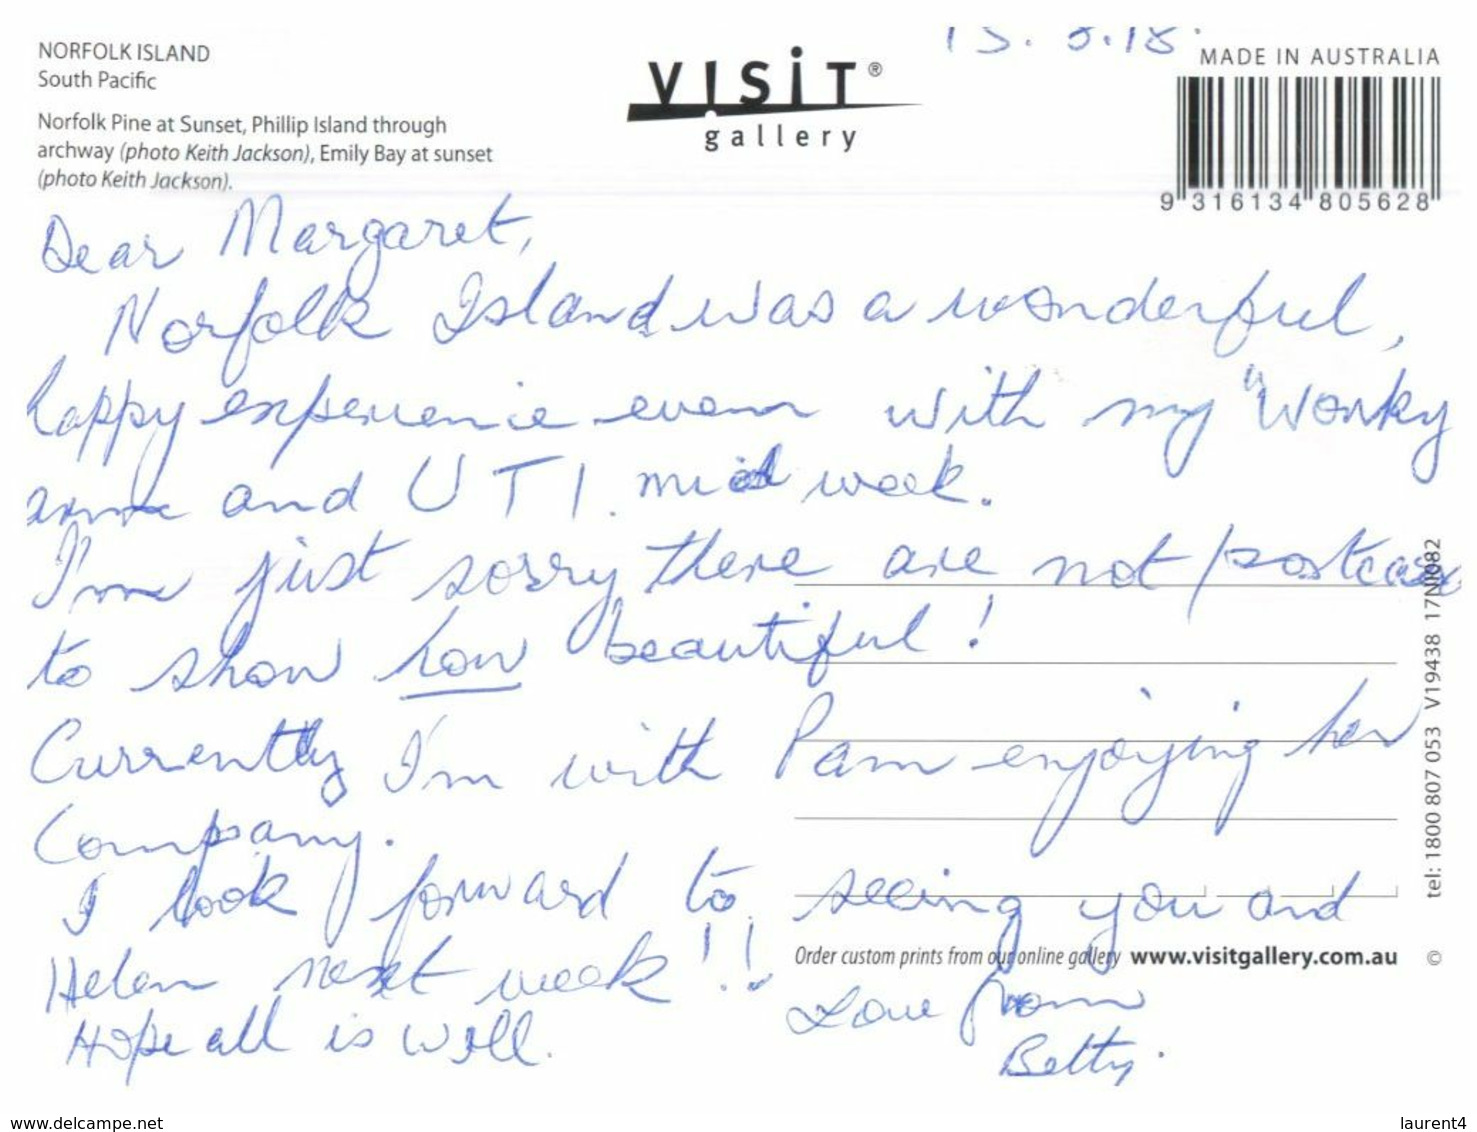 NORFOLK ISLAND
South Pacific
Norfolk Pine at Sunset, Phillip Island through
archway (photo Keith Jackson), Emily Bay at sunset
(photo Keith Jackson).
VISIT®
gallery
MADE IN AUSTRALIA
9 316134 805628
Dear Margaret,
Norfolk Island was a wonderful,
happy experience even with my "Wonky
arm and UTI. mid week.
I'm just sorry there are not
to show how beautiful!
Currently I'm with Pam enjoying her
Company.
I look forward to seeing you and
Helen next week!!
Hope all is well.
Love from
Betty.
Order custom prints from our online gallery www.visitgallery.com.au ©
tel: 1800 807 053 V19438 17NI082
www.delcampe.net
laurent4